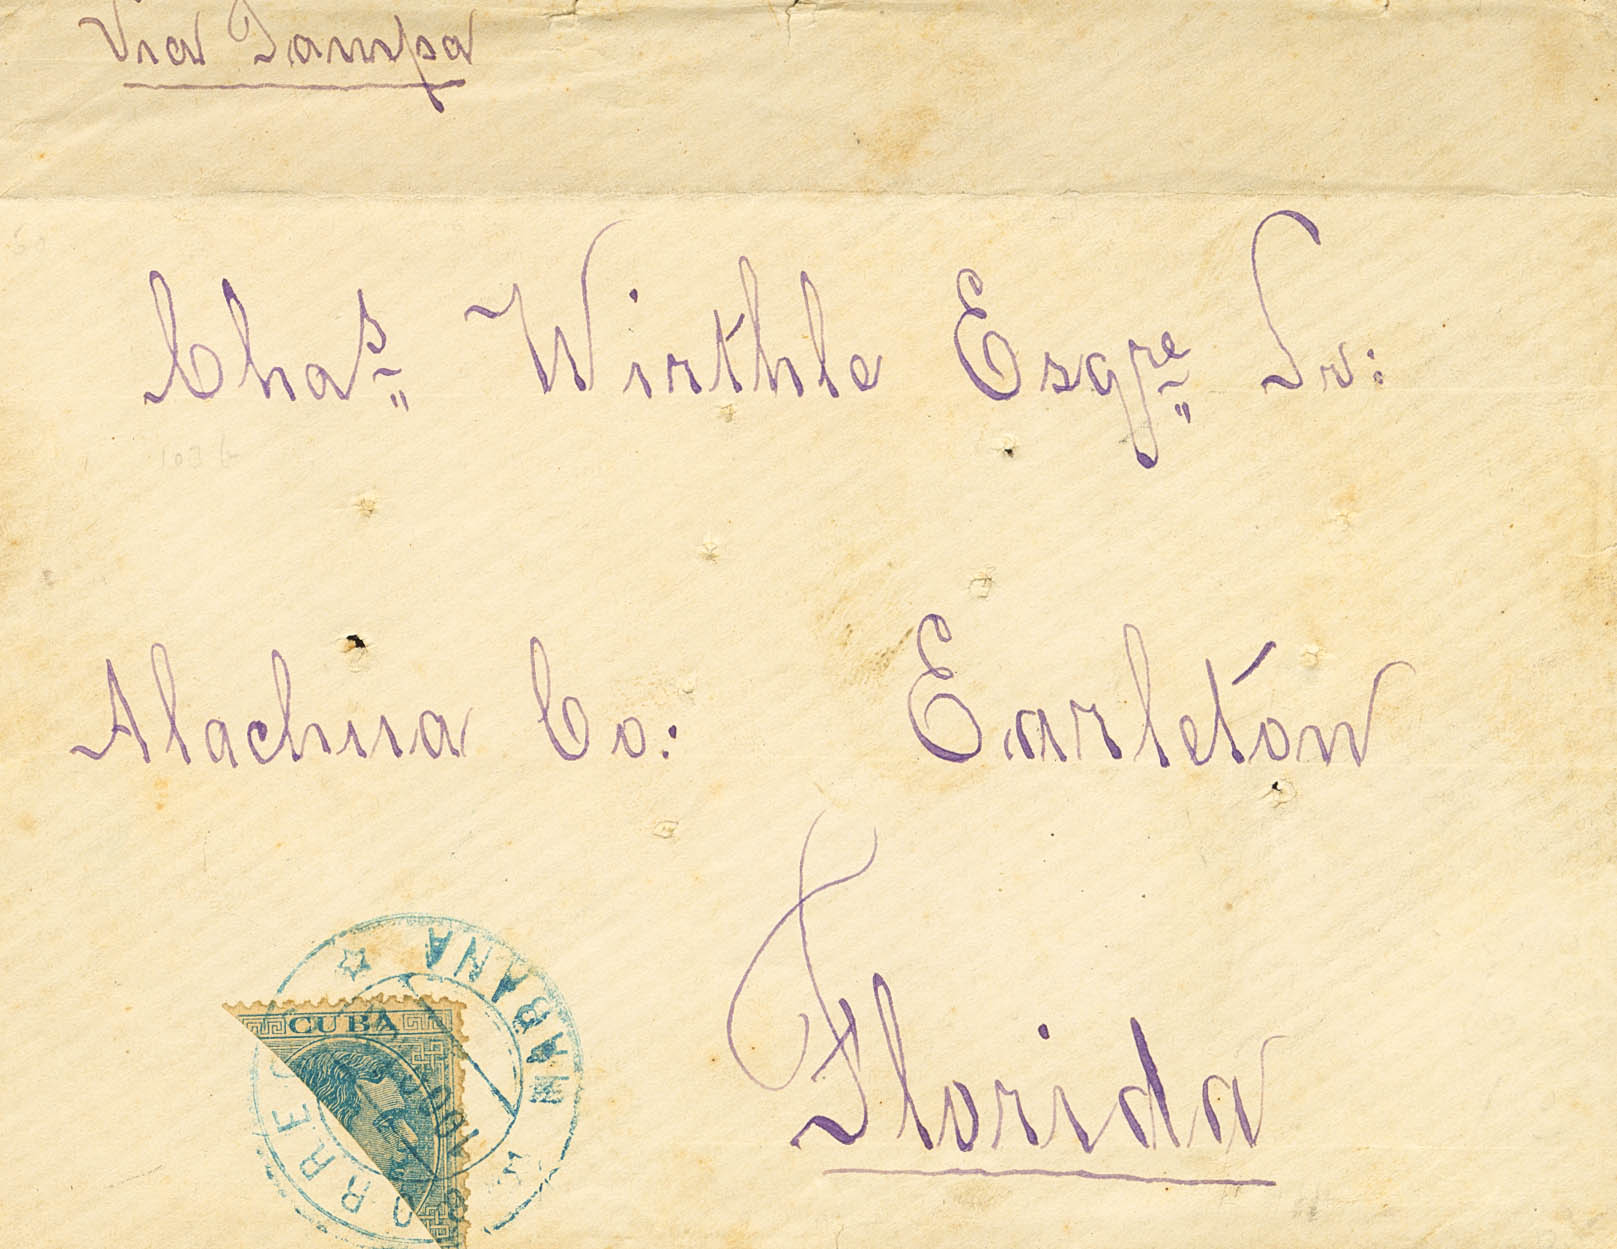 Via Tampa
Chas Wirthle Esqre Sr:
Alachua Co: Earleton
Florida
CUBA
HABANA